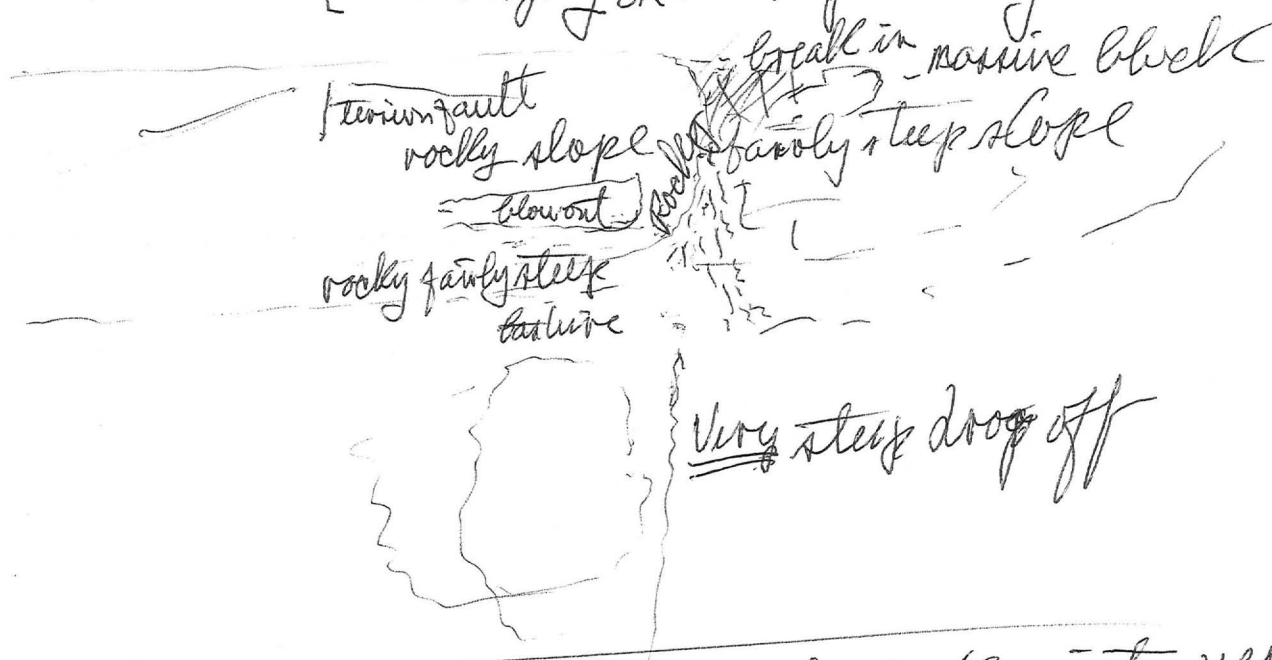 break in massive block
fault
rocky slope
Rocky
fairly steep slope
blowout
rocky fairly steep
Very steep drop off